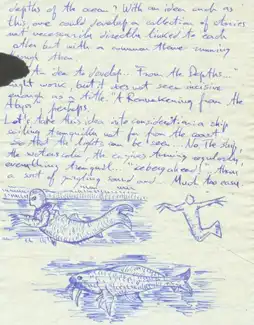 depths of the ocean? With an idea such as
this one could develop a collection of stories
not necessarily directly linked to each
other but with a common theme running
through them.
An idea to develop. From the Depths...
might work, but it does not seem incisive
enough as a title. "A Reawakening from the
Abyss", perhaps.
Let's take this idea into consideration: a ship
sailing tranquilly not far from the coast
so that the lights can be seen... No. The ship,
the waters calm, the engines turning regularly,
everything tranquil. "Iceberg ahead!", then
a sort of grinding sound and... Much too easy.